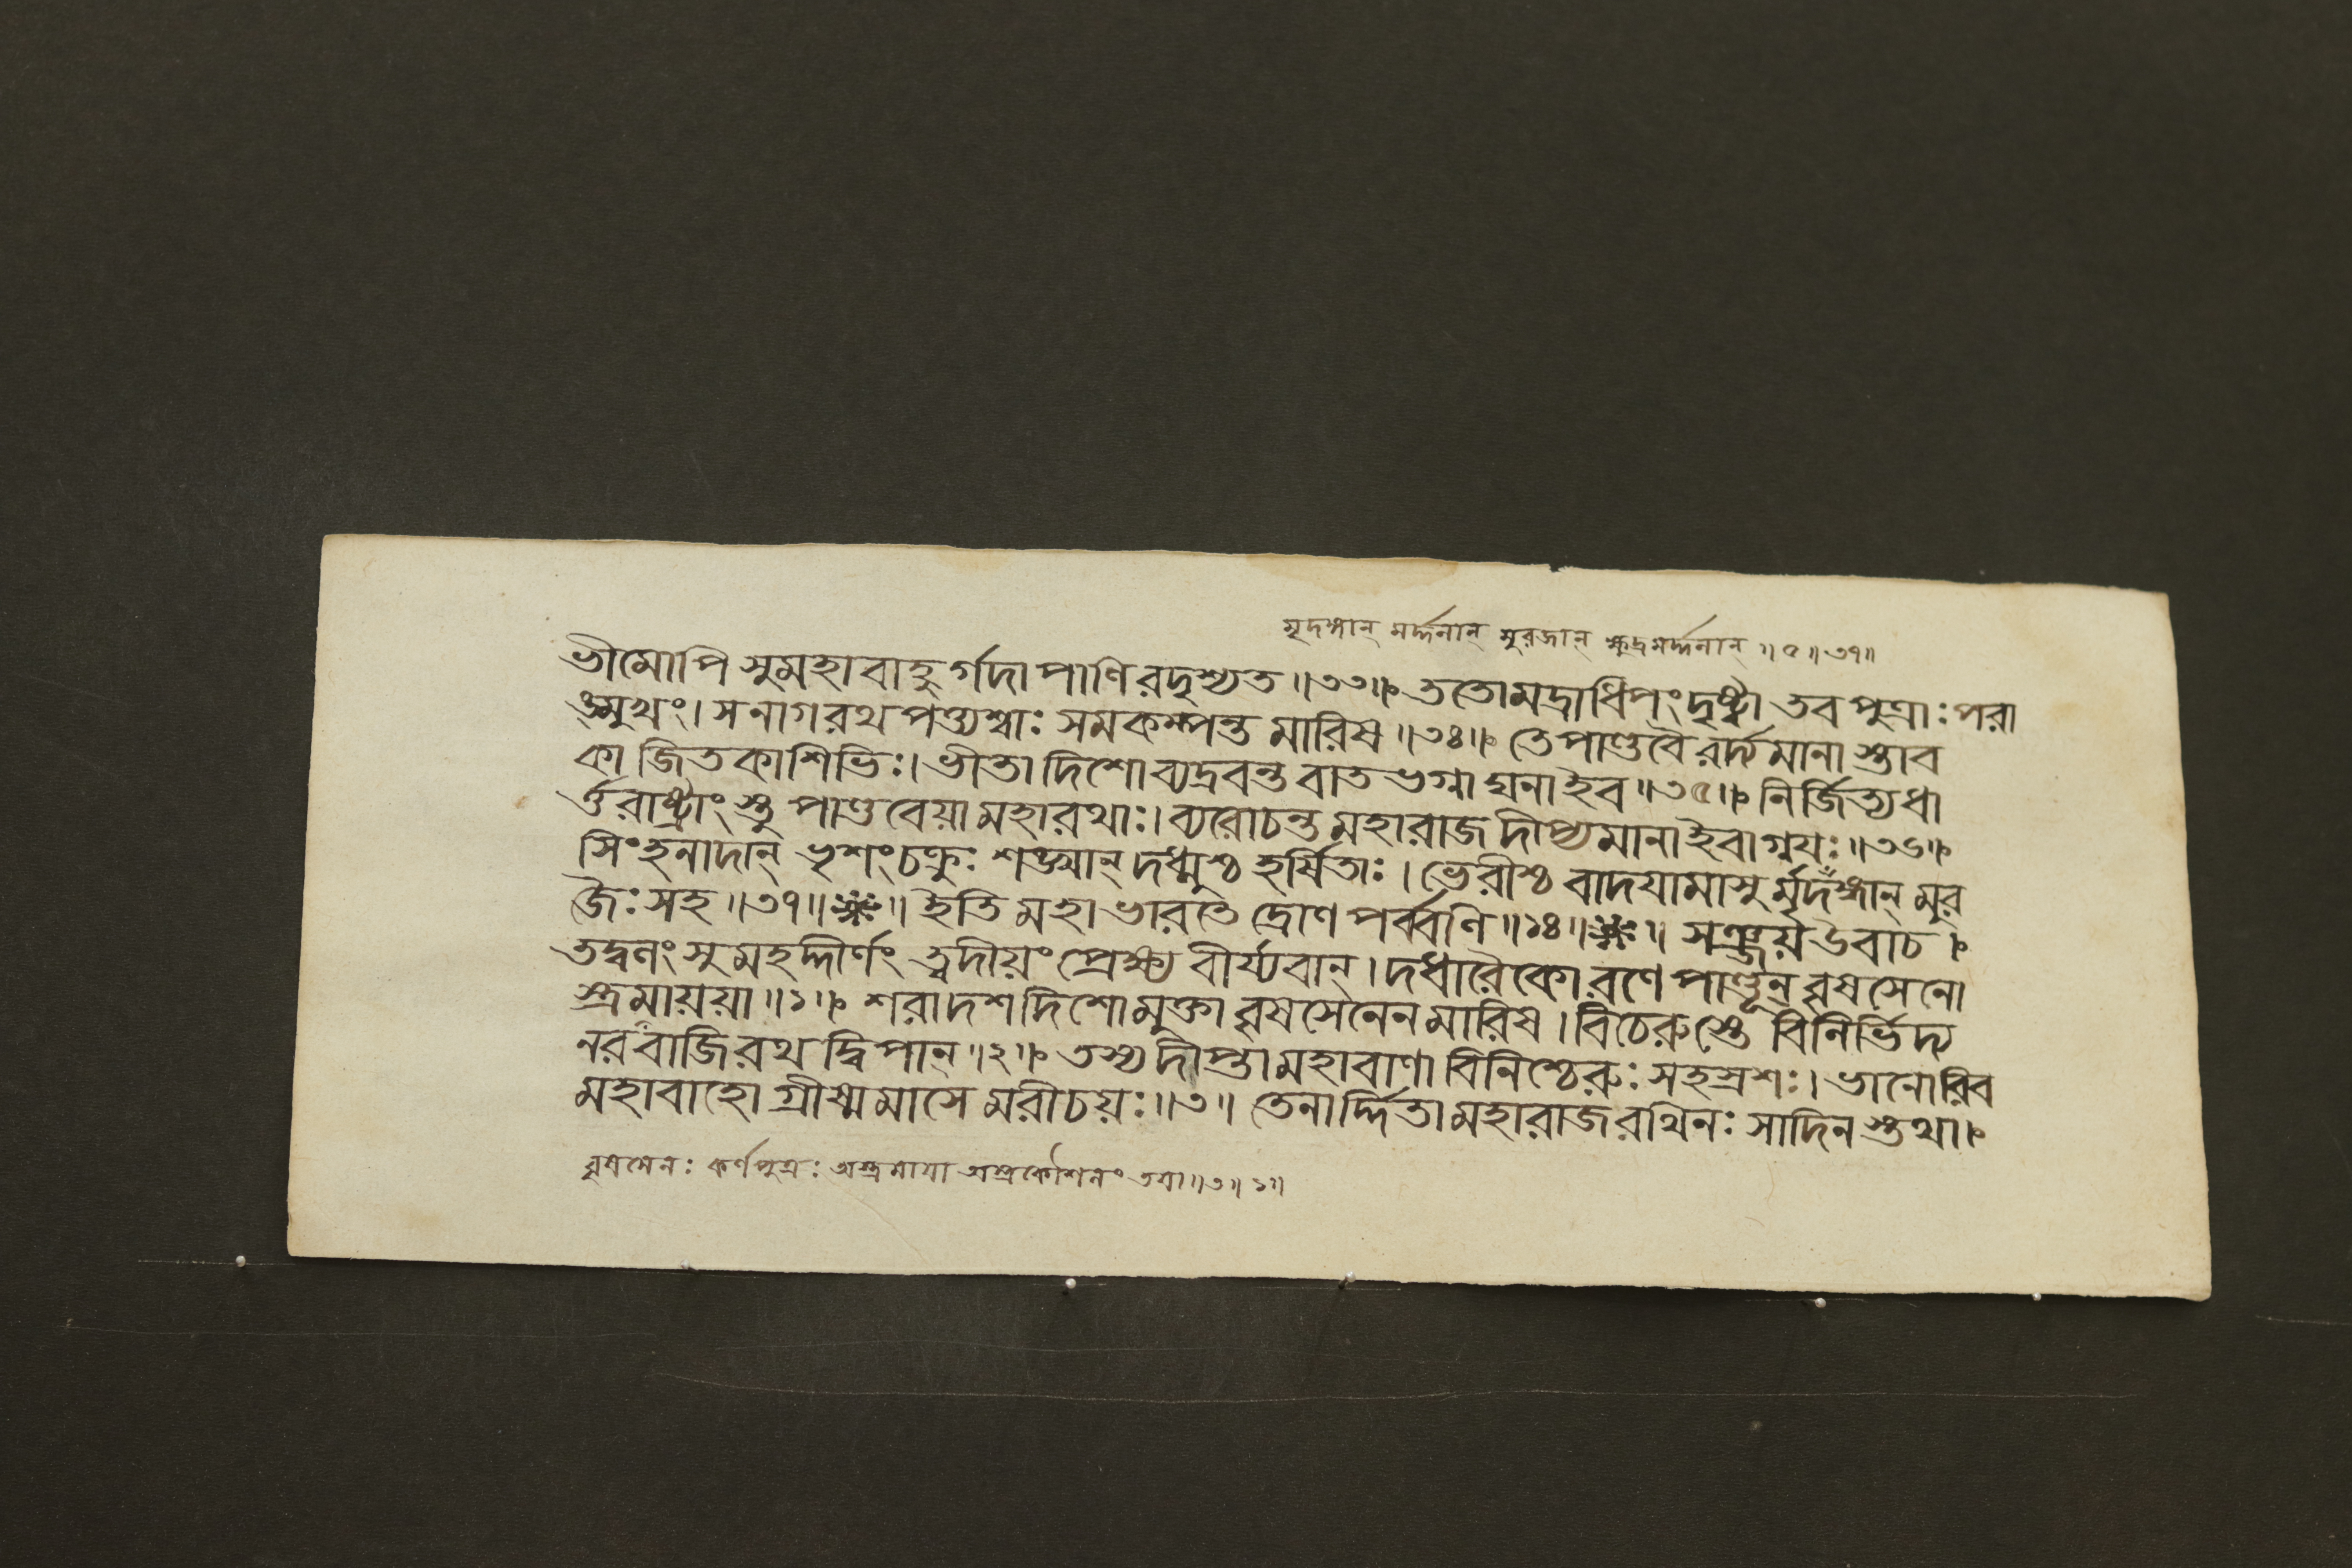 মৃদঙ্গান্ মর্দ্দলান্ মুরজান্ ক্ষুদ্রমর্দ্দলান্ ॥৫॥৩৭॥
ভীমোপি সুমহাবাহুর্গদাপাণিরদৃশ্যত॥৩৩॥ ততোমদ্রাধিপং দৃষ্ট্বা তব পুত্রাঃ পরা
ঙ্মুখং। সনাগরথপত্ত্যশ্বাঃ সমকম্পন্ত মারিষ॥৩৪॥ তে পাণ্ডবৈরর্দ্যমানাস্তাব
কা জিতকাশিভিঃ। ভীতা দিশোব্যদ্রবন্ত বাতভগ্নাঘনাইব॥৩৫॥ নির্জিত্যধা
র্ত্তরাষ্ট্রাংস্তু পাণ্ডবেয়ামহারথাঃ। ব্যরোচন্ত মহারাজ দীপ্যমানাইবাগ্নয়ঃ॥৩৬॥
সিংহনাদান্ ভৃশং চক্রুঃ শঙ্খান্ দধ্মুশ্চ হর্ষিতাঃ। ভেরীশ্চ বাদয়ামাসুর্মৃদঙ্গান্ মুর
জৈঃ সহ॥৩৭॥ ॥ইতি মহাভারতে দ্রোণপর্ব্বণি॥১৪॥ ॥ সঞ্জয়উবাচ।
তদ্বলং সুমহদ্দীর্ণং ত্বদীয়ং প্রেক্ষ্য বীর্য্যবান্। দধারৈকোরণে পাণ্ডূন্ বৃষসেনো
স্ত্রমায়য়া॥১॥ শরাদশদিশোমুক্তা বৃষসেনেন মারিষ। বিচেরুস্তে বিনির্ভিদ্য
নরবাজিরথদ্বিপান্॥২॥ তস্য দীপ্তামহাবাণা বিনিশ্চেরুঃ সহস্রশঃ। ভানোরিব
মহাবাহো গ্রীষ্মমাসে মরীচয়ঃ॥৩॥ তেনার্দ্দিতামহারাজ রথিনঃ সাদিনস্তথা।
বৃষসেনঃ কর্ণপুত্রঃ অস্ত্রমায়া অস্ত্রকৌশলং তয়া॥৩॥১॥